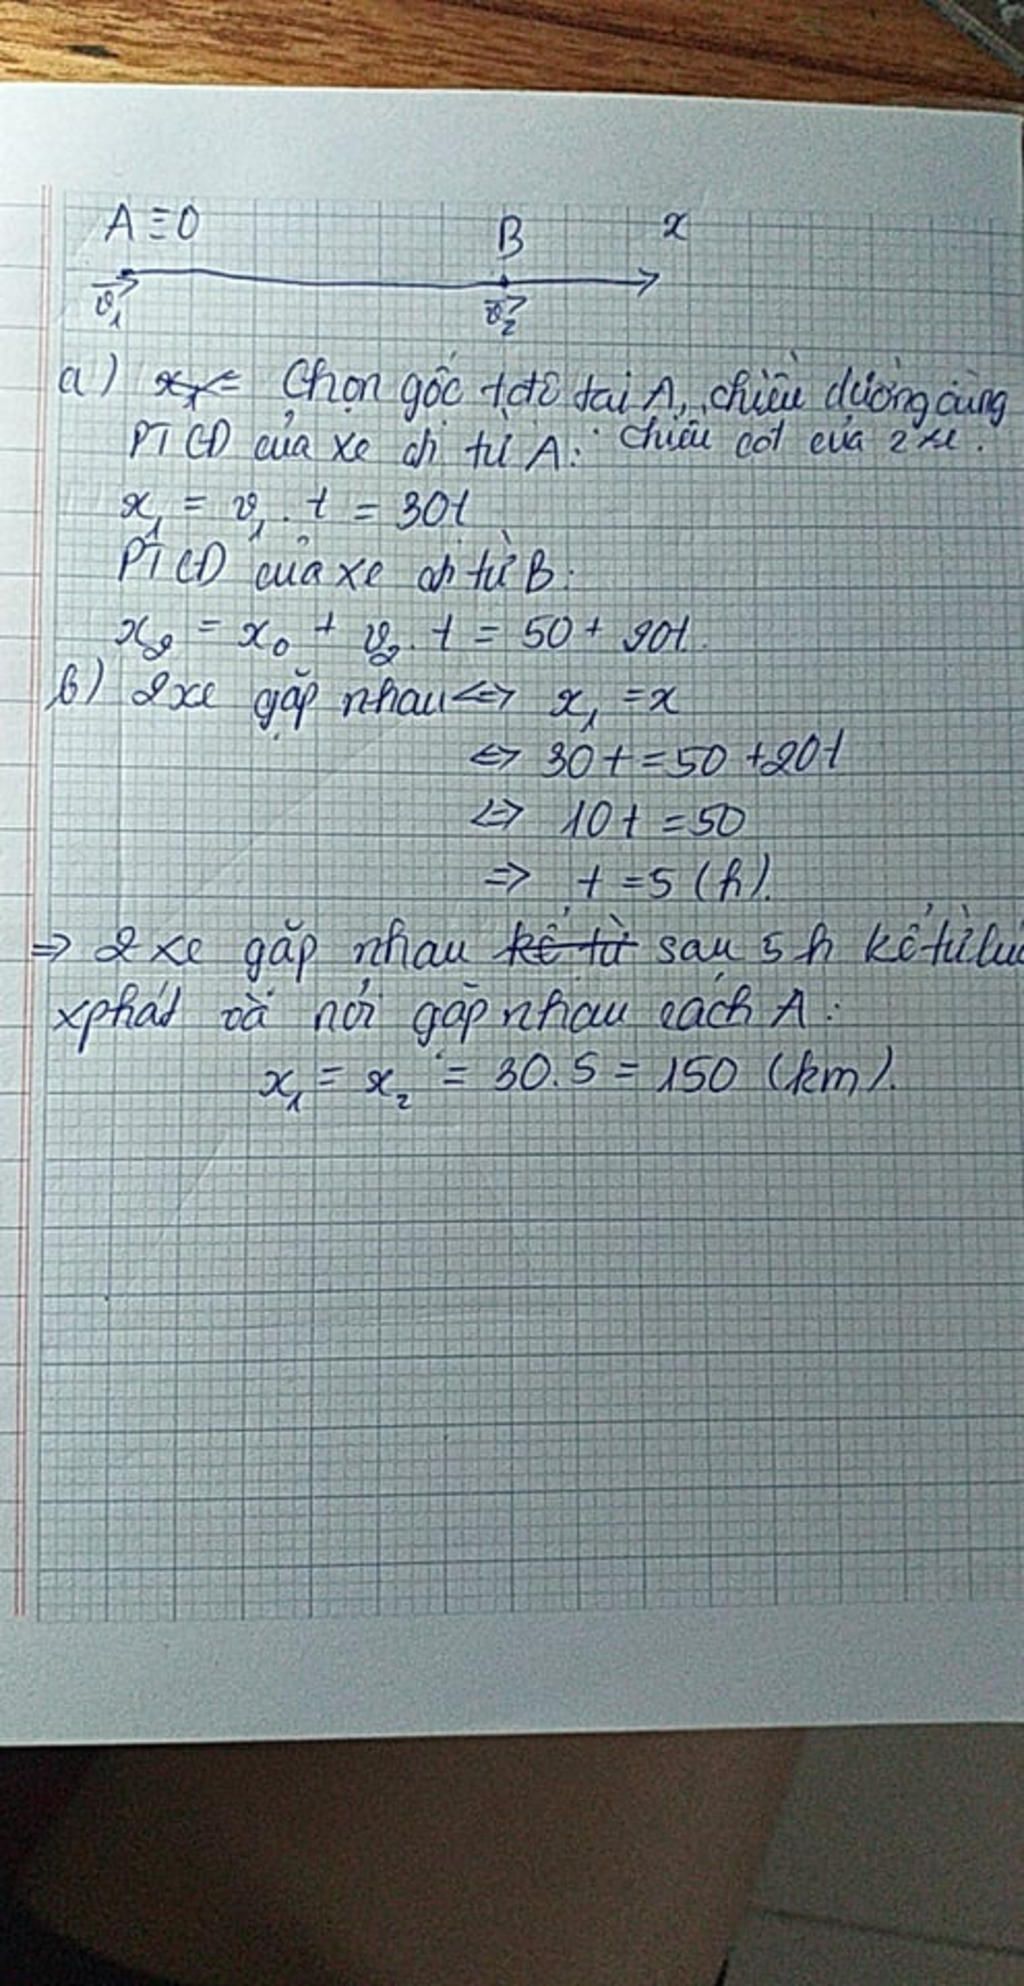 A ≡ O B x
v₁ v₂
a) Chọn gốc tđộ tại A, chiều dương cùng
chiều cđ của 2 xe.
PTCĐ của xe đi từ A:
x₁ = v₁. t = 30t
PTCĐ của xe đi từ B:
x₂ = x₀ + v₂. t = 50 + 20t.
b) 2 xe gặp nhau <=> x₁ = x
<=> 30t = 50 + 20t
<=> 10t = 50
=> t = 5 (h).
=> 2 xe gặp nhau kể từ sau 5h kể từ lúc
xphát và nơi gặp nhau cách A:
x₁ = x₂ = 30.5 = 150 (km).